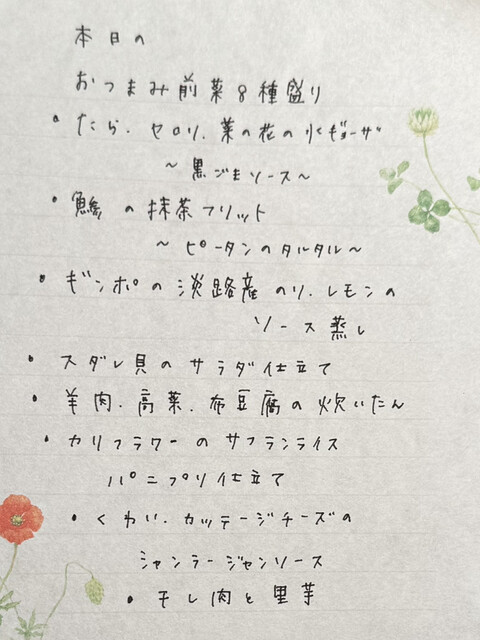 本日の
おつまみ前菜8種盛り
・たら、セロリ、菜の花の水ギョーザ
～黒ごまソース～
・鱶の抹茶フリット
～ピータンのタルタル～
・ギンポの淡路産のり、レモンの
ソース蒸し
・スダレ貝のサラダ仕立て
・羊肉、高菜、布豆腐の炊いたん
・カリフラワーのサフランライス
パニプリ仕立て
・くわい、カッテージチーズの
ジャンラージャンソース
・干し肉と里芋